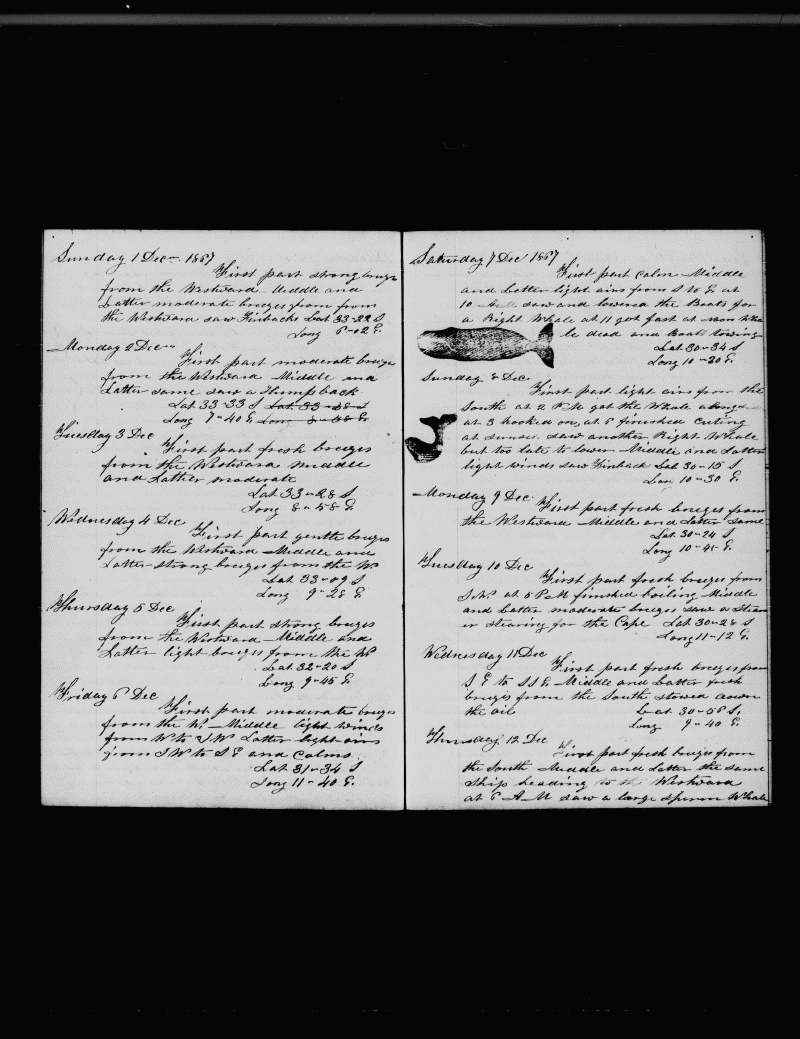 Sunday 1 Dec 1867
First part strong breeze
from the Westward Middle and
Latter moderate breezes from from
the Westward saw Finbacks Lat 33-22 S
Long 6-02 E.
Monday 2 Dec
First part moderate breeze
from the Westward Middle and
Latter same saw a Humpback
Lat 33-33 S
Long 7-40 E
Tuesday 3 Dec
First part fresh breezes
from the Westward middle
and Latter moderate
Lat 33-28 S
Long 8-58 E.
Wednesday 4 Dec
First part gentle breezes
from the Westward Middle and
Latter strong breezes from the W
Lat 33-09 S
Long 9-28 E
Thursday 5 Dec
First part strong breezes
from the Westward Middle and
Latter light breezes from the W
Lat 32-20 S
Long 9-45 E.
Friday 6 Dec
First part moderate breezes
from the W. Middle light winds
from W to S.W Latter light airs
from S W to S E and Calms
Lat 31-34 S
Long 11-40 E.
Saturday 7 Dec 1867
First part Calm Middle
and Latter light airs from S to E at
10 saw and lowered the Boats for
a Right Whale at 11 got fast at noon Wha
le dead and Boats towing
Lat 30-34 S
Long 10-20 E.
Sunday 8 Dec.
First part light airs from the
South at 2 P M got the Whale alongside
at 3 hooked on, at 5 finished Cuting
at sunset saw another Right Whale
but too late to lower Middle and Latter
light winds saw Finback Lat 30-15 S
Lon 10-30 E.
Monday 9 Dec.
First part fresh breezes from
the Westward Middle and Latter same
Lat 30-24 S
Long 10-45 E.
Tuesday 10 Dec
First part fresh breezes from
S.W. at 5 P M finished boiling Middle
and Latter moderate breezes saw a Steam
er stearing for the Cape Lat 30-28 S
Long 11-12 E.
Wednesday 11 Dec
First part fresh breezes from
S E to S S E Middle and Latter fresh
breezes from the South stowed down
the oil Lat 30-58 S,
Long 9-40 E.
Thursday, 12 Dec
First part fresh breezes from
the South Middle and Latter the same
Ship heading to the Westward
at 6 A M saw a large Sperm Whale